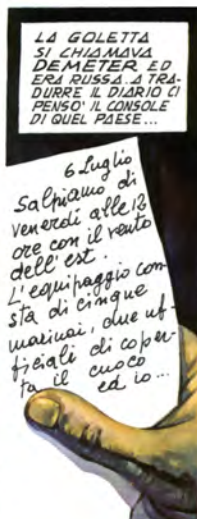 LA GOLETTA
SI CHIAMAVA
DEMETER ED
ERA RUSSA. A TRA-
DURRE IL DIARIO CI
PENSO' IL CONSOLE
DI QUEL PAESE...
6 Luglio
Salpiamo di
venerdì alle 12
ore con il vento
dell'est.
L'equipaggio con-
sta di cinque
marinai, due uf-
ficiali di coper-
ta il cuoco
ed io...